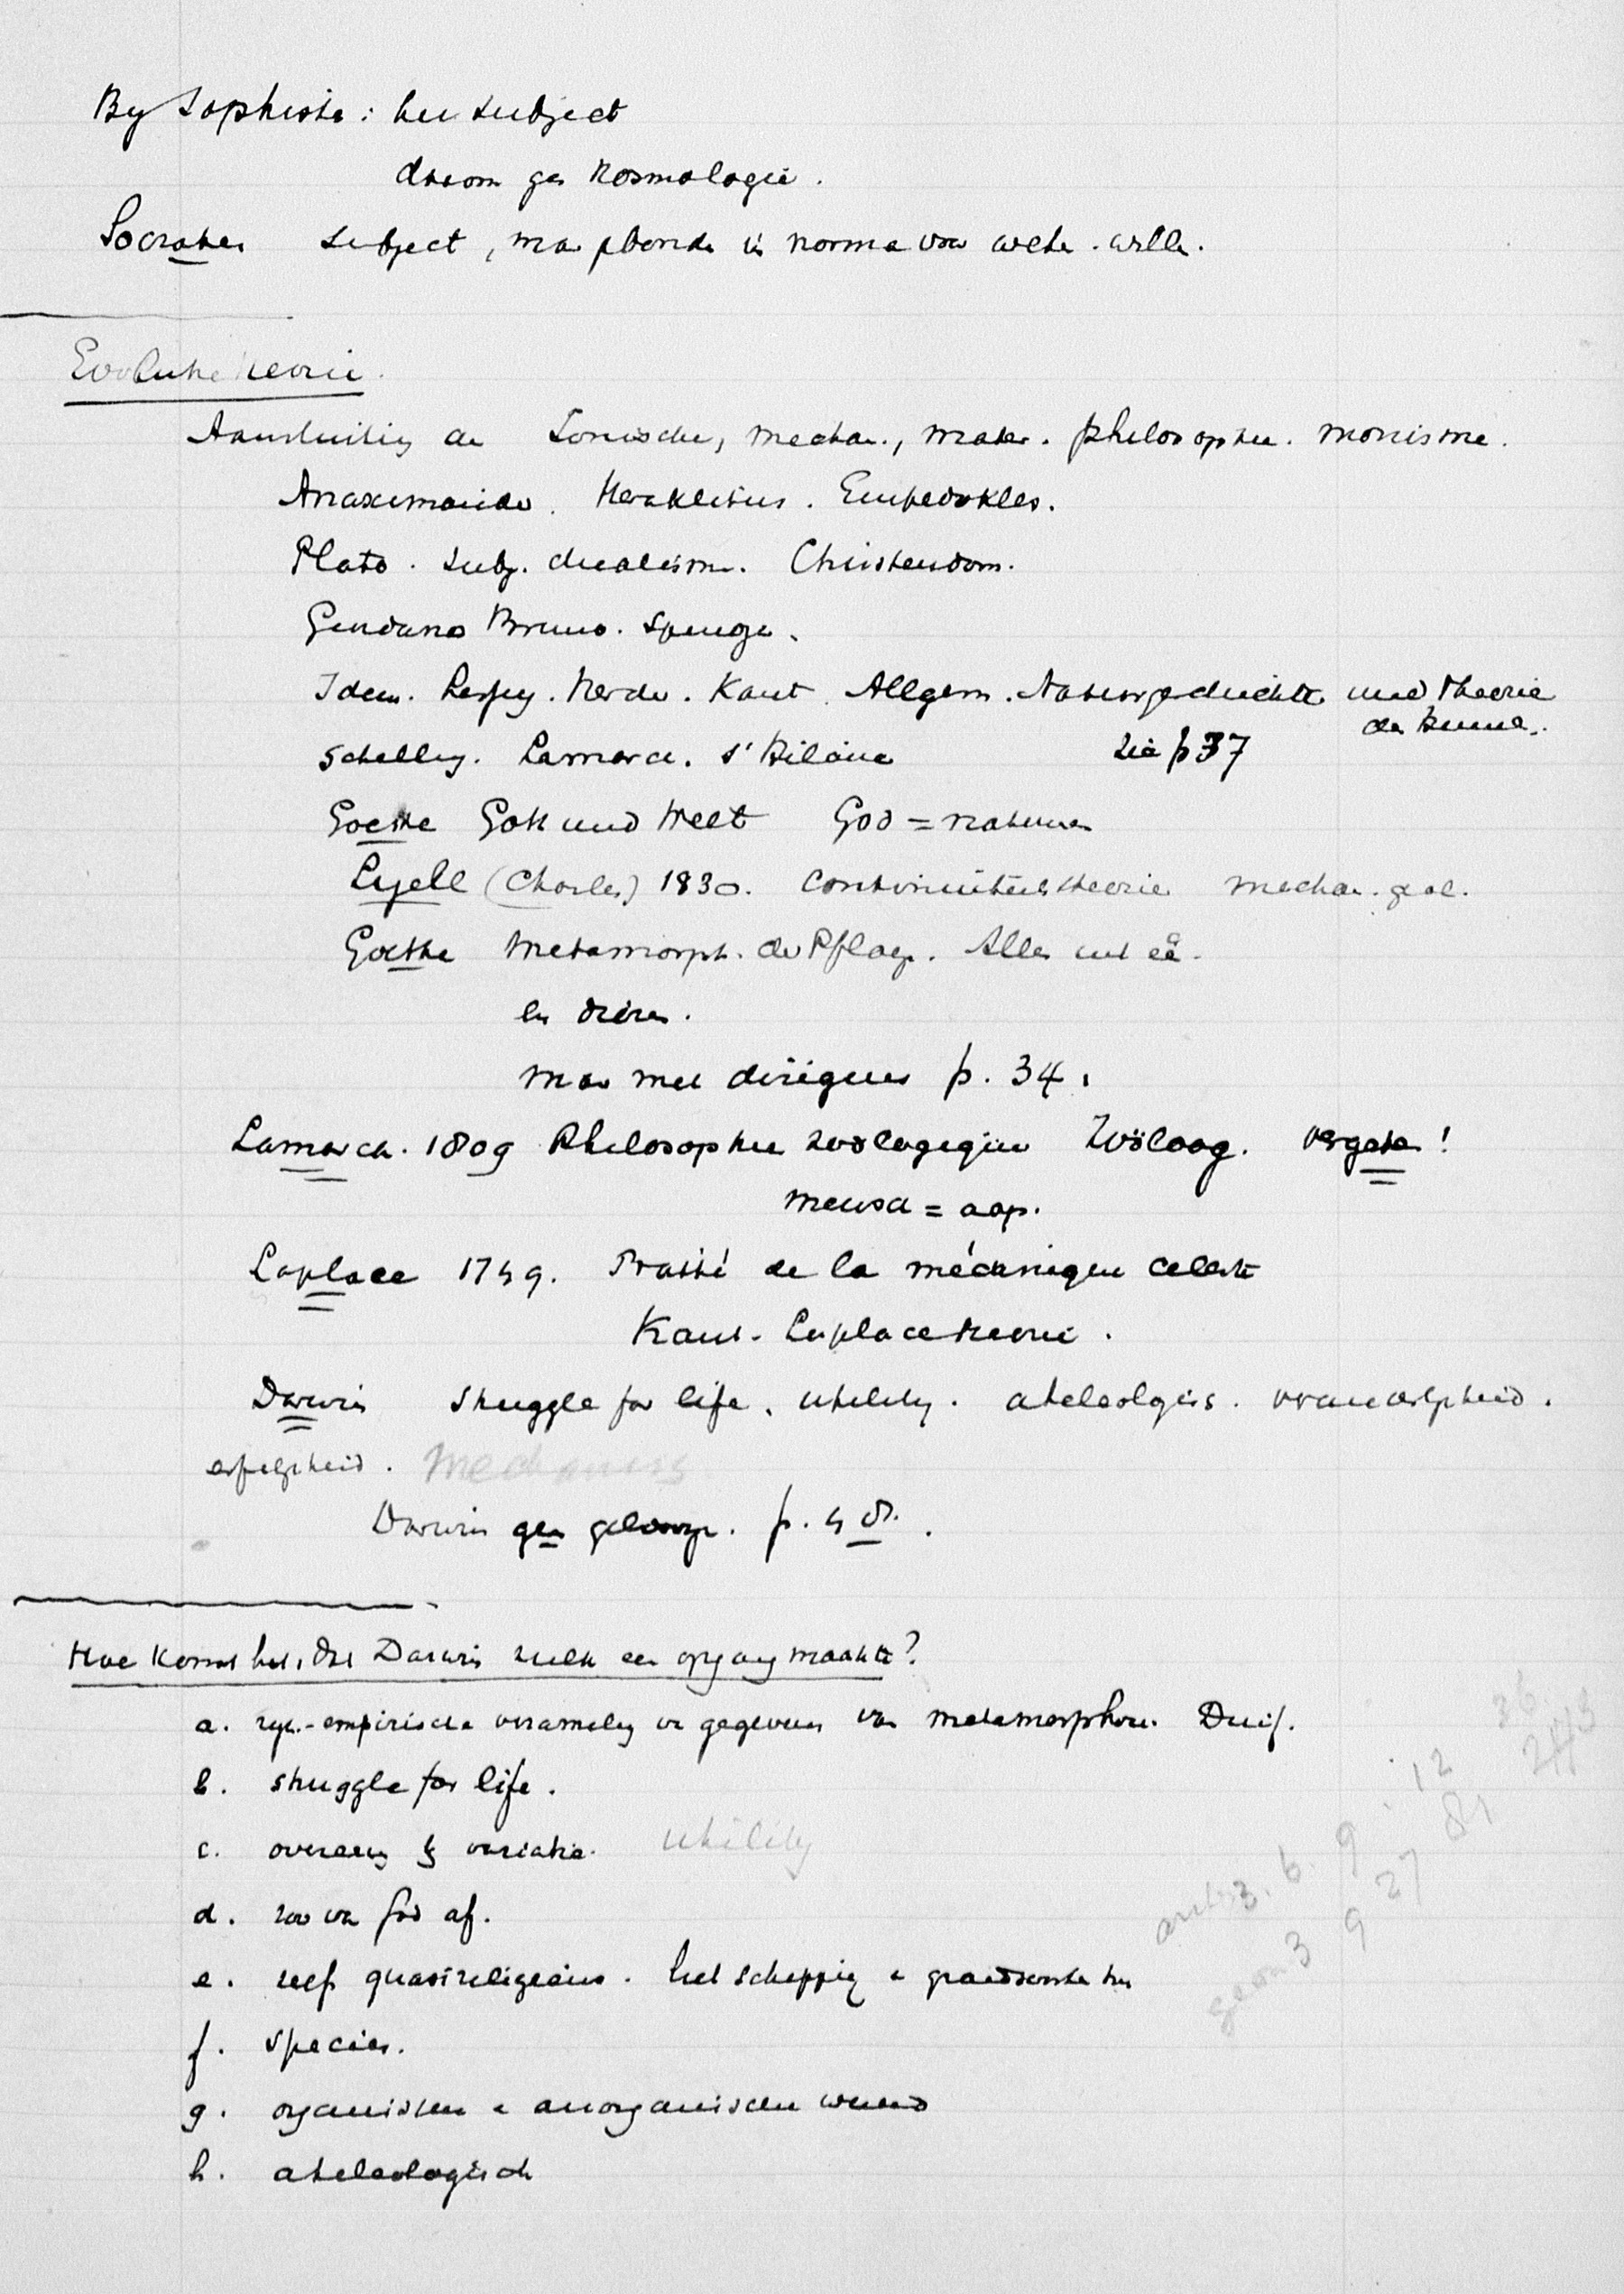 By Sophisten: het subject
daarom geen Kosmologie.
Socrates subject, maar gebonden is norma voor weten. willen.
Evolutie theorie.
Aansluiting de Ionische, mechan., mater. philosophie. monisme.
Anaximander. Heraklitus. Empedokles.
Plato. subj. dualisme. Christendom.
Giordano Bruno. Spinoza.
Idem. Lessing. Herder. Kant. Allgem. Naturgeschichte und Theorie
des Himmels.
Schelling. Lamarck. St Hilaire zie p 37
Goethe Gott und Welt God = natuur
Lyell (Charles) 1830. Continuiteitstheorie mechan. geol.
Goethe Metamorph. der Pflanz. Alles uit één.
en dieren.
maar met p. 34.
Lamarck. 1809 Philosophie zoologique Zoöloog. vergeten!
mensch = aap.
Laplace 1749. Traité de la mécanique celeste
Kant-Laplacetheorie.
Darwin struggle for life. utility. ateleologis. veranderlijkheid.
erfelijkheid. Mechanisch
Darwin geen p. 48.
Hoe komt het, dat Darwin zulk een opgang maakte?
a. rijk-empirische verzameling van gegevens van metamorphose. Duif.
b. struggle for life.
c. overerving & variatie. utility
d. zoo van God af.
e. zelf quasireligieus. het schepping
f. species.
g. organischen en anorganischen wereld
h. ateleologisch
3. 6. 9. 12
3 9 27 81